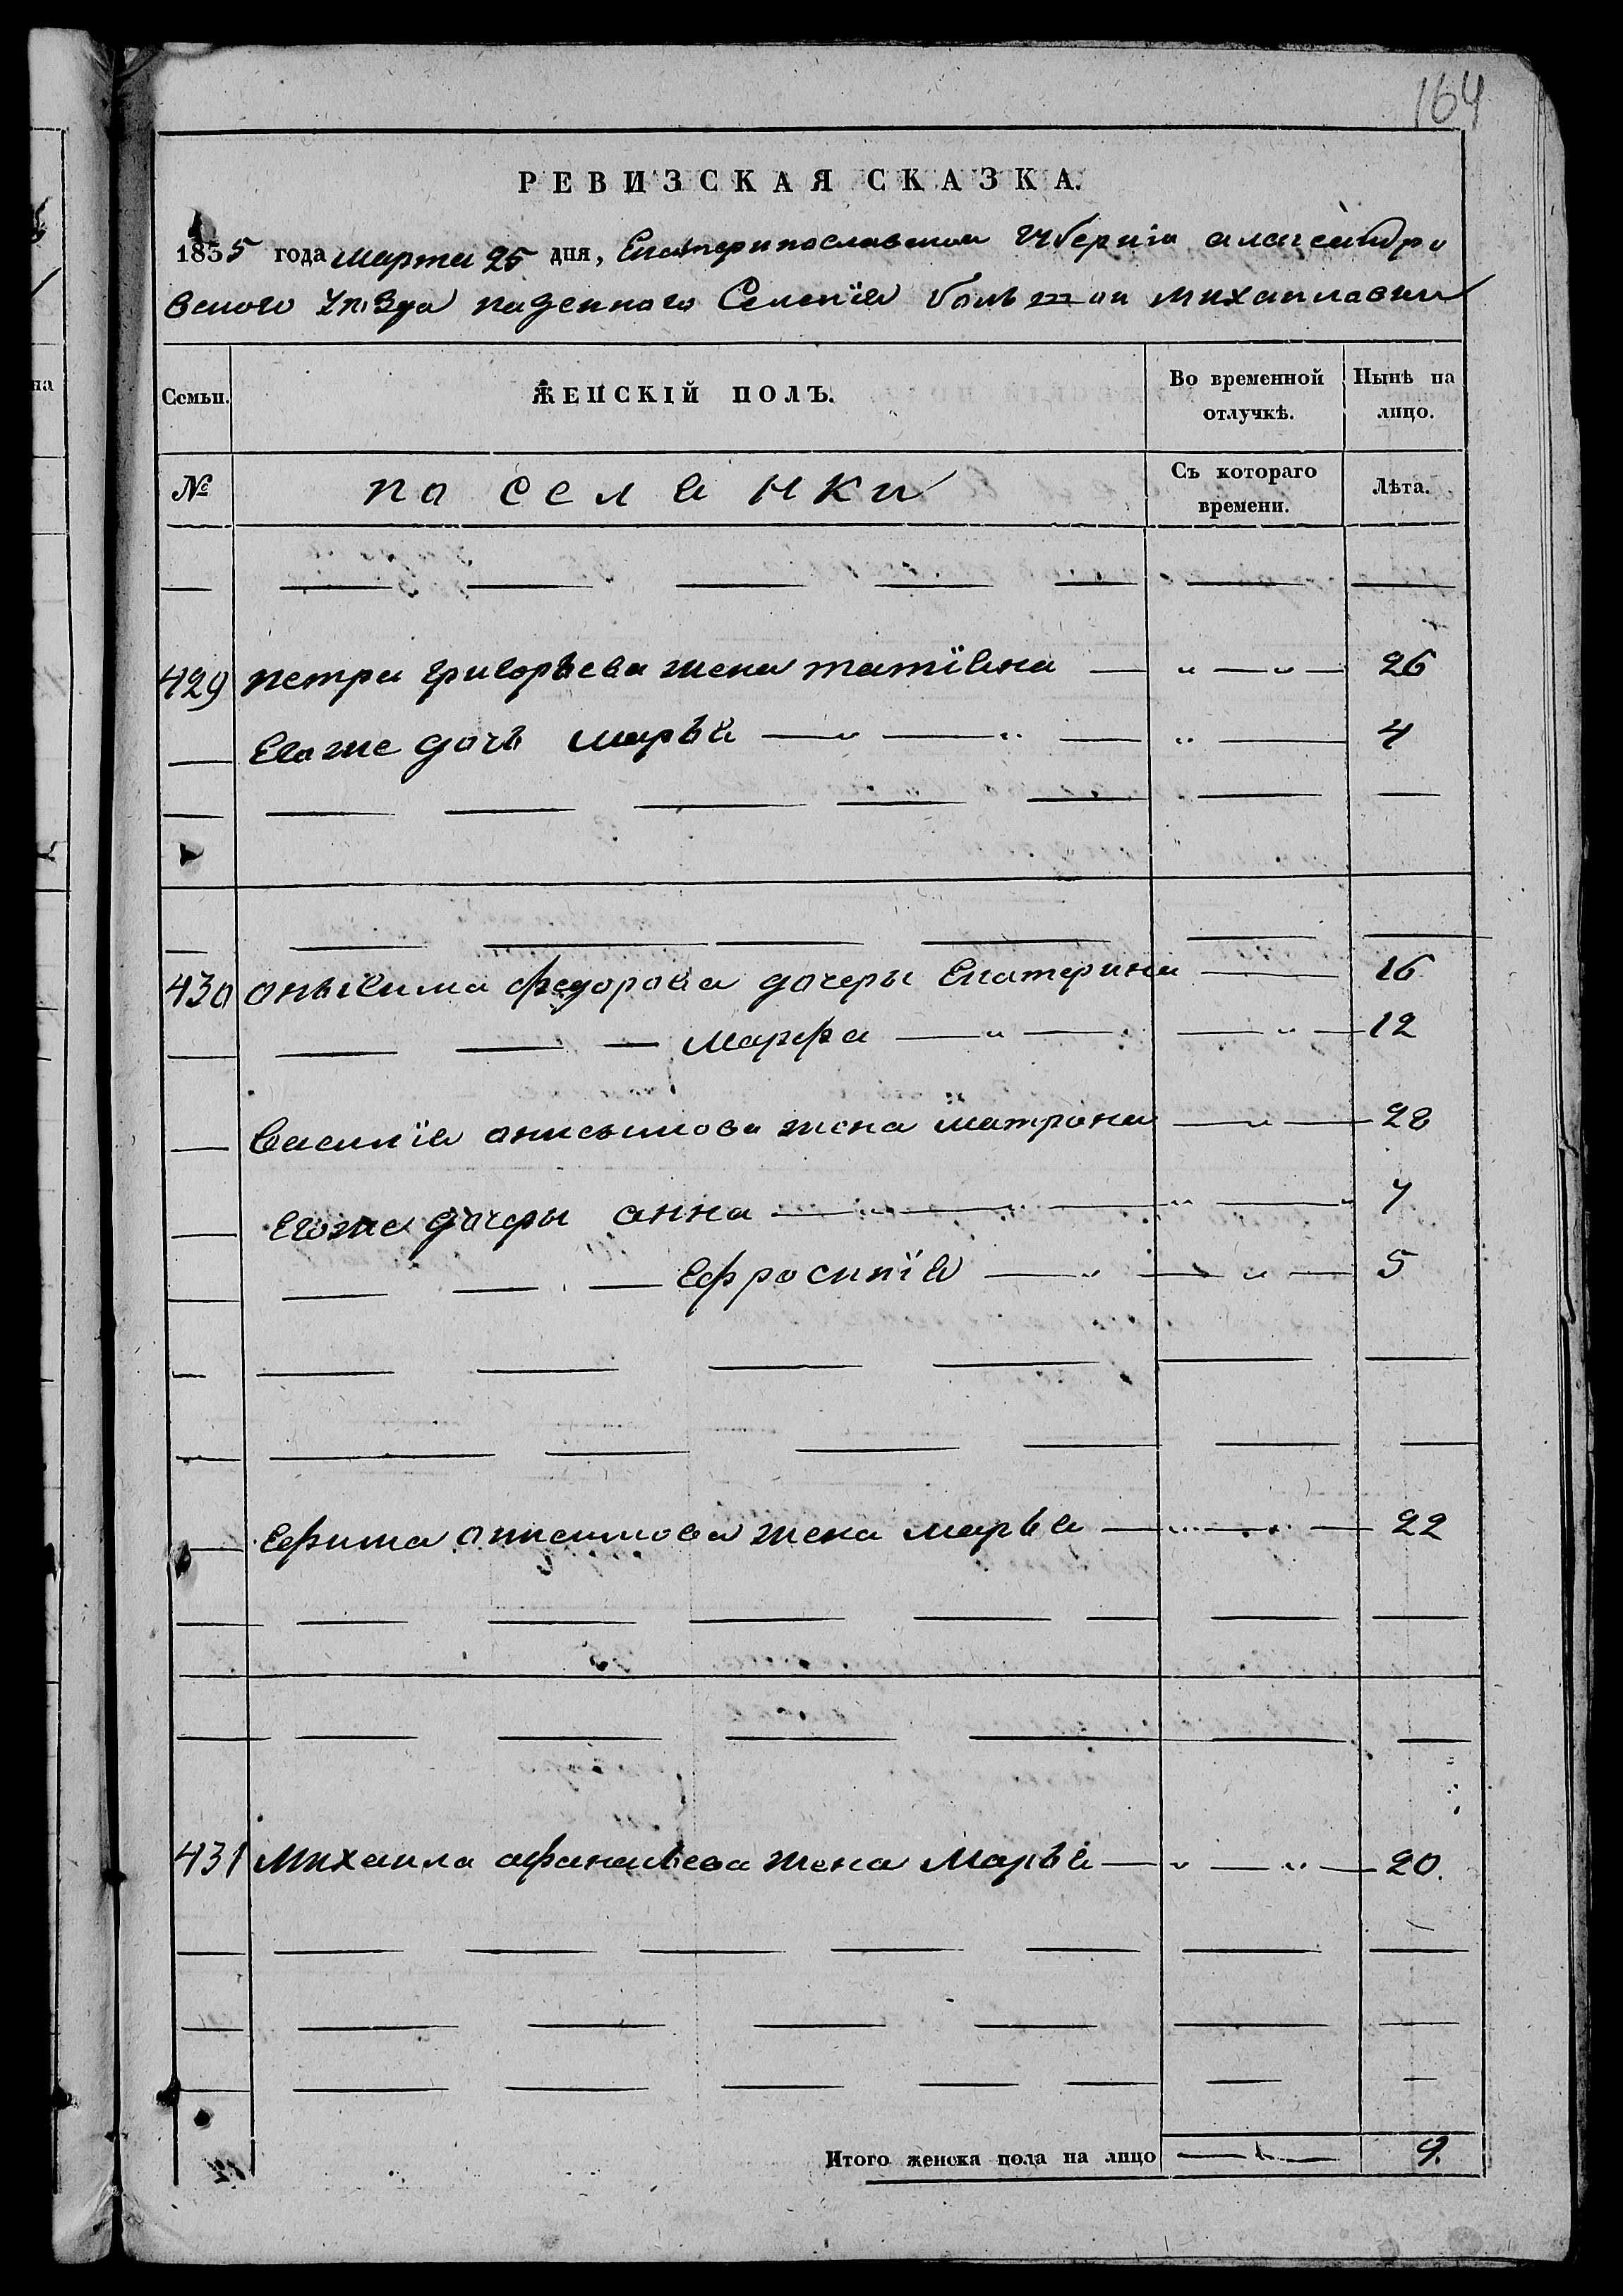 164
РЕВИЗСКАЯ СКАЗКА.
1835 года марта 25 дня, Екатеринославской губернiи александро
вского уѣзда казенного Селенiя большой михайловки
Семьи. ЖЕНСКIЙ ПОЛЪ. Во временной отлучкѣ. Нынѣ на лицо.
№ поселянки Съ котораго времени. Лѣта.
429 петра григорьева жена татiяна 26
Егоже дочь марья 4
430 онисима федорова дочеры Екатерина 16
марфа 12
василiя онисимова жена матрона 28
Егоже дочеры анна 7
Ефросинiя 5
Ефима онисимова жена марья 22
431 Михаила афанасьева жена Марья 20.
Итого женска пола на лицо 9.